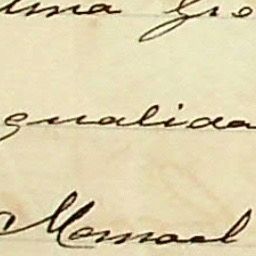 uma
qualida
Manoel